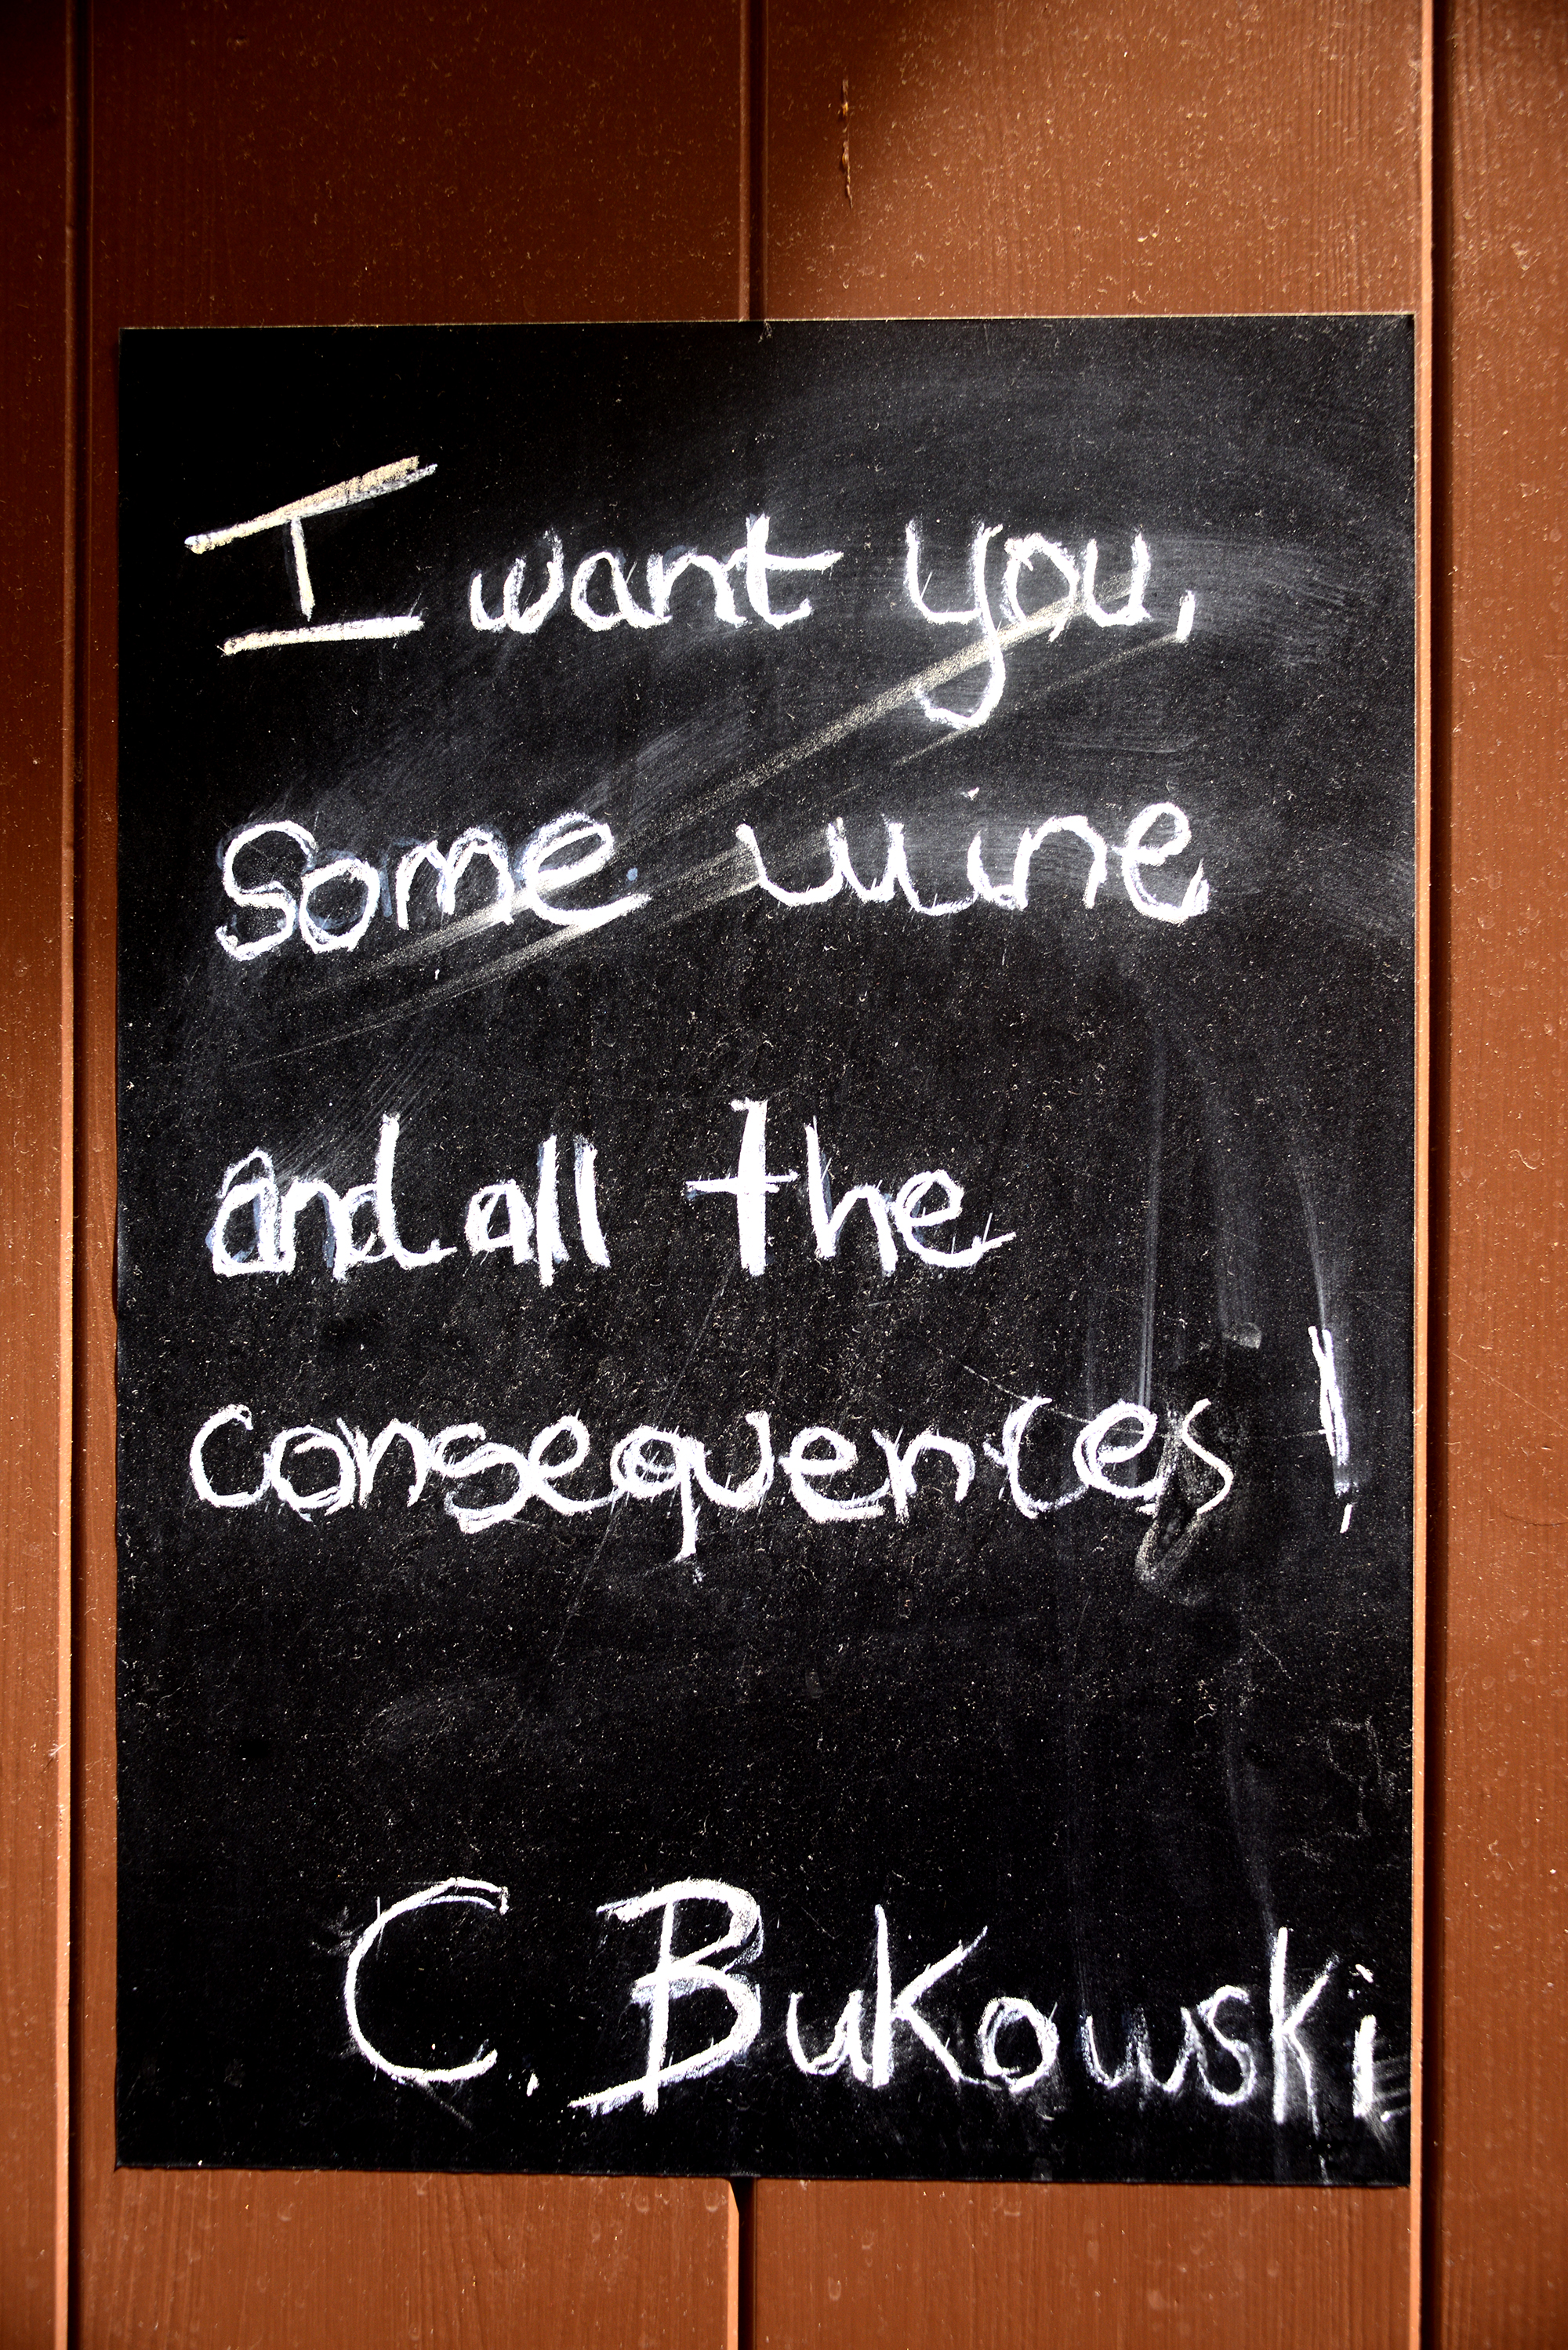 I want you,
Some wine
and all the
consequences!
C. Bukowski